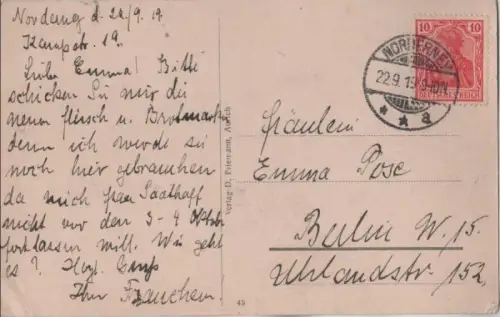 Norderney d. 22/9. 19.
Kampstr. 19.
Liebe Emma! Bitte
schicken Sie mir die
neuen fleisch u. Brotmarken
denn ich werde sie
noch hier gebrauchen
da mich frau Saathoff
nicht vor den 3-4 Oktober
fortlassen will. Wie geht
es? Hrzl. Gruß
Ihr
Verlag D. Friemann, Aurich
10 10
DEUTSCHES REICH
NORDERNEY
22.9.19. 9-10 V.
* * a
fräulein
Emma Pose
Berlin W. 15.
Uhlandstr. 152.
45